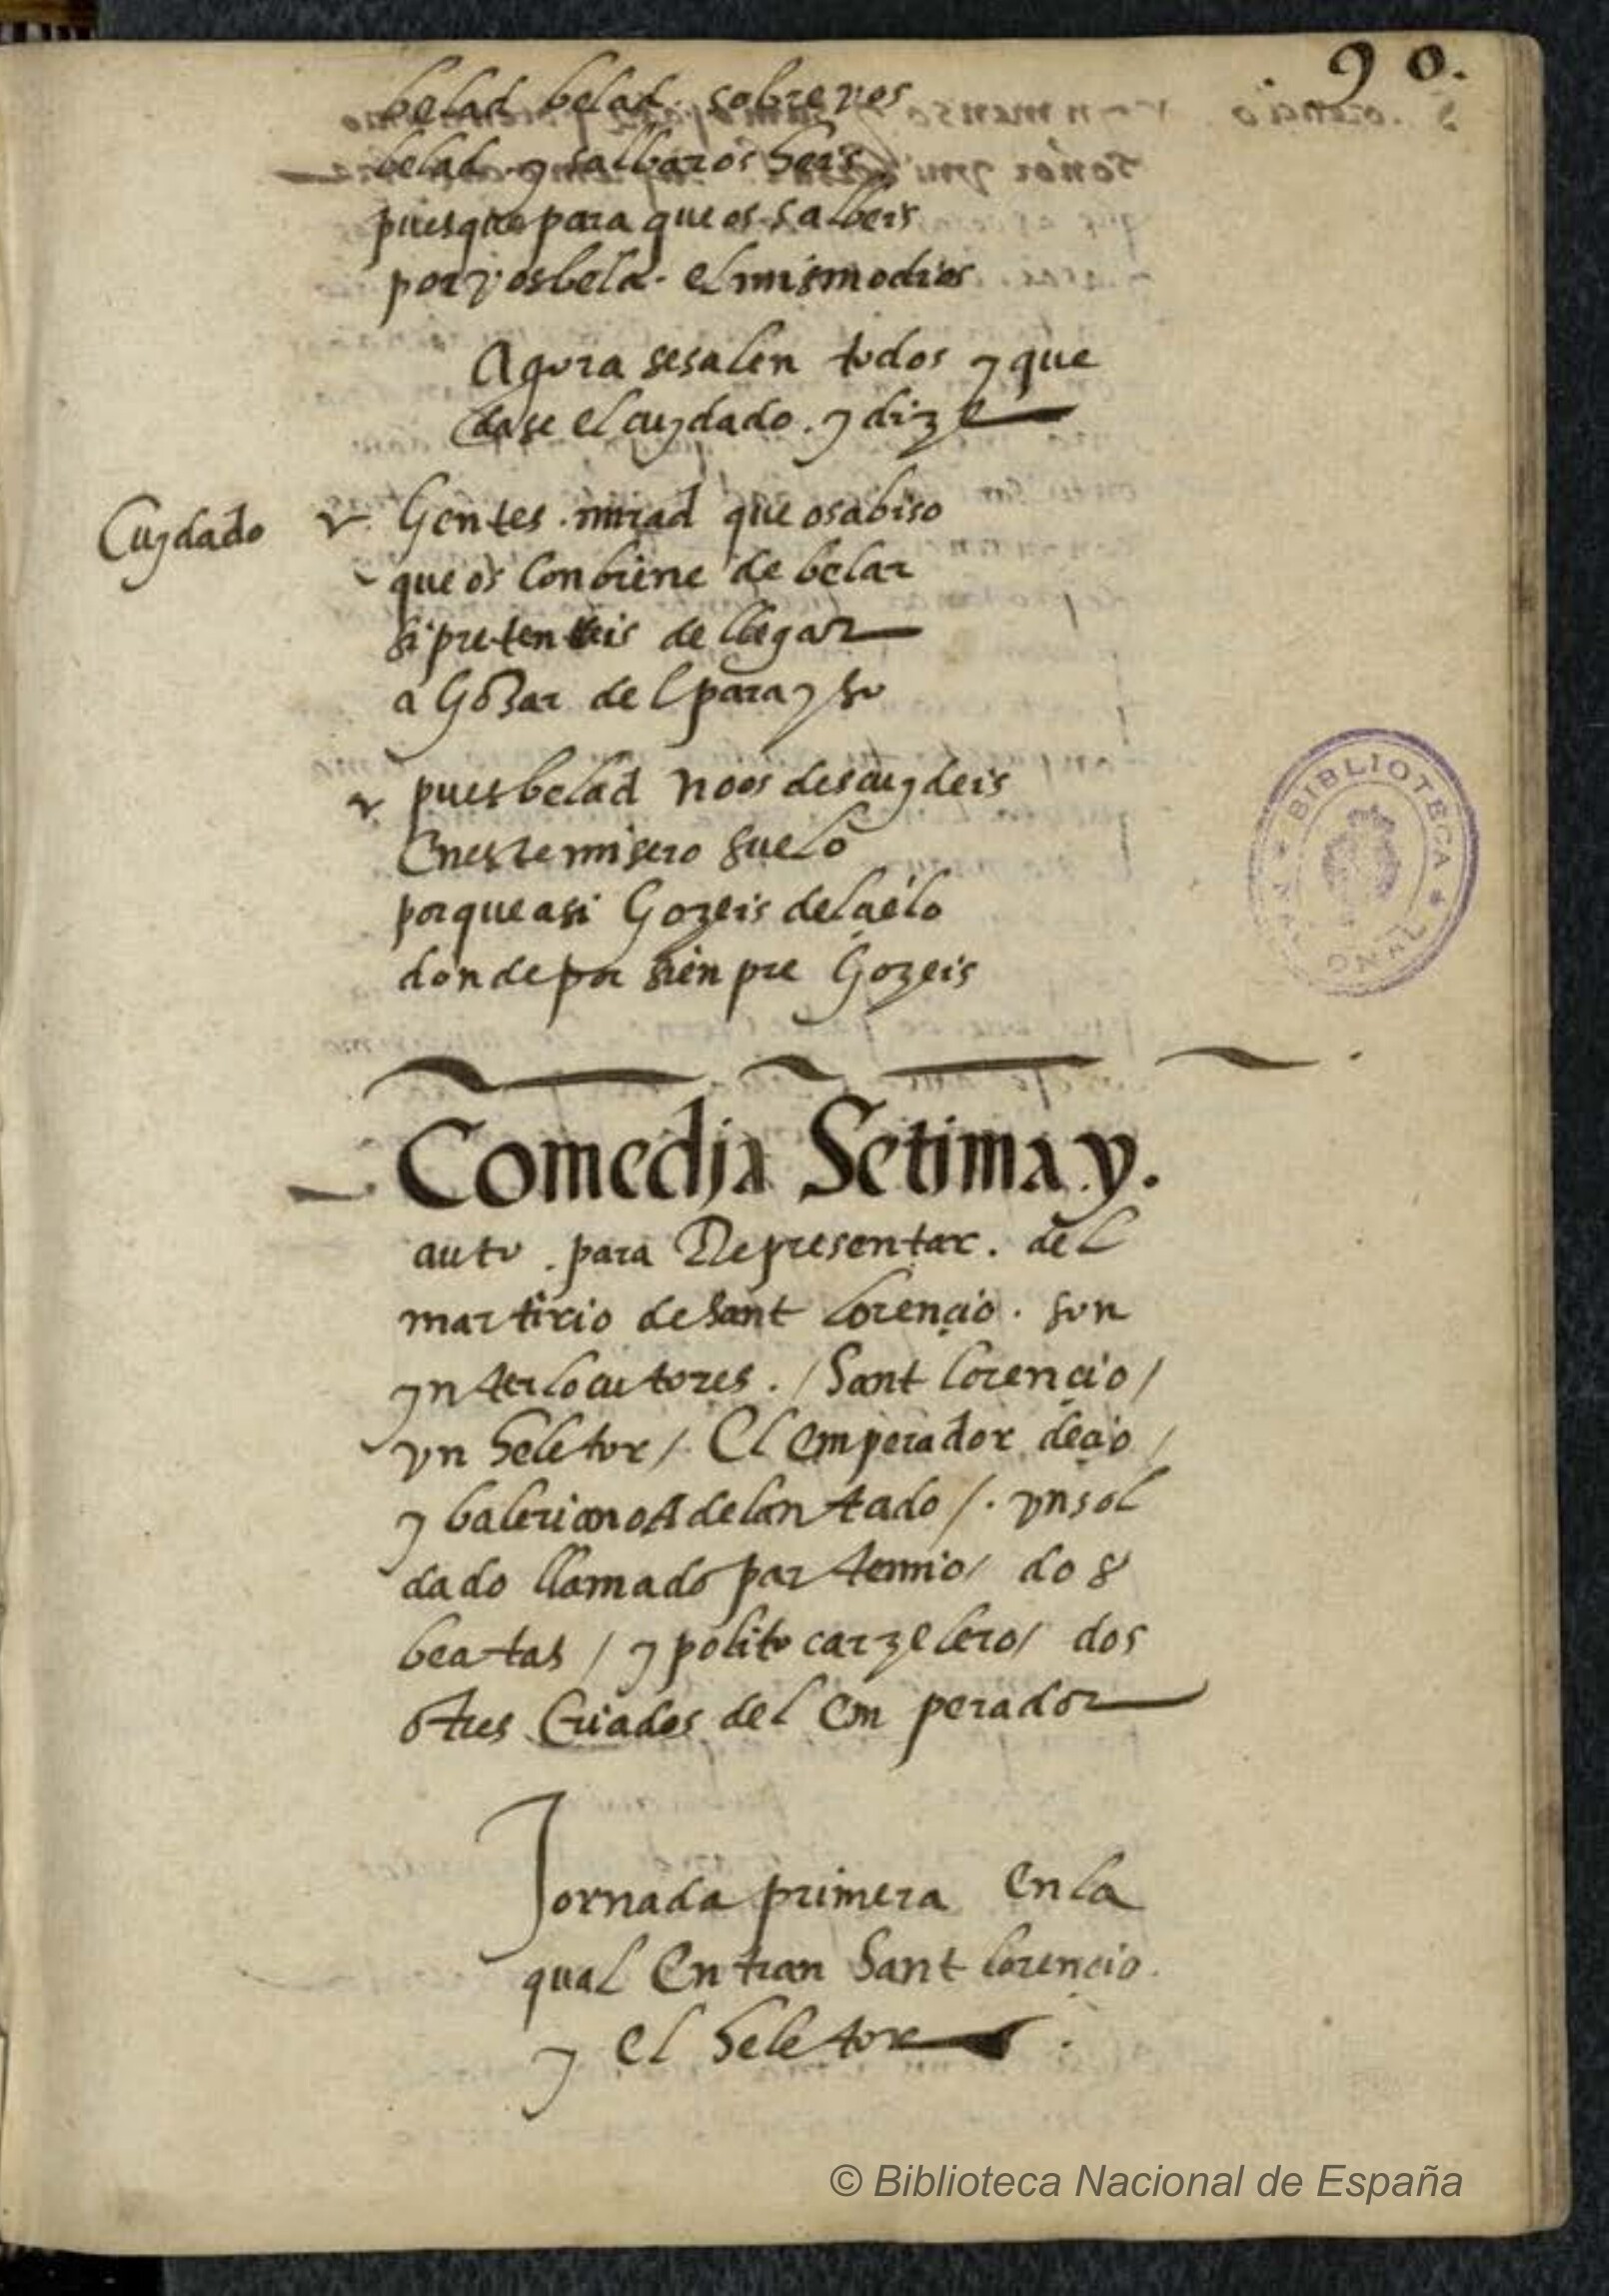 90.
belad belad. sobre vos
belad y salbaros heis
pues que para que os salbeis
por vos bela. el mismo dios
Agora se salen todos y que
dase el cuydado. y dize
Cuydado v. Gentes. mirad que os abiso
que os conbiene de belar
si pretendeis de llegar
a Gozar del parayso
v. pues belad no os descuydeis
En este misero suelo
porque asi Gozeis del çielo
donde por sienpre Gozeis
Comedia Setima y.
auto. para Representar. del
martirio de Sant Lorençio. son
ynterlocutores. / Sant Lorençio /
vn heletor /. El emperador deçio /
y baleriano Adelantado /. vn sol
dado llamado partemio / dos
beatas / ypolito carzelero / dos
otres Criados del Emperador
Jornada primera En la
qual Entran Sant Lorençio.
y el heletor.
BIBLIOTECA NACIONAL
© Biblioteca Nacional de España